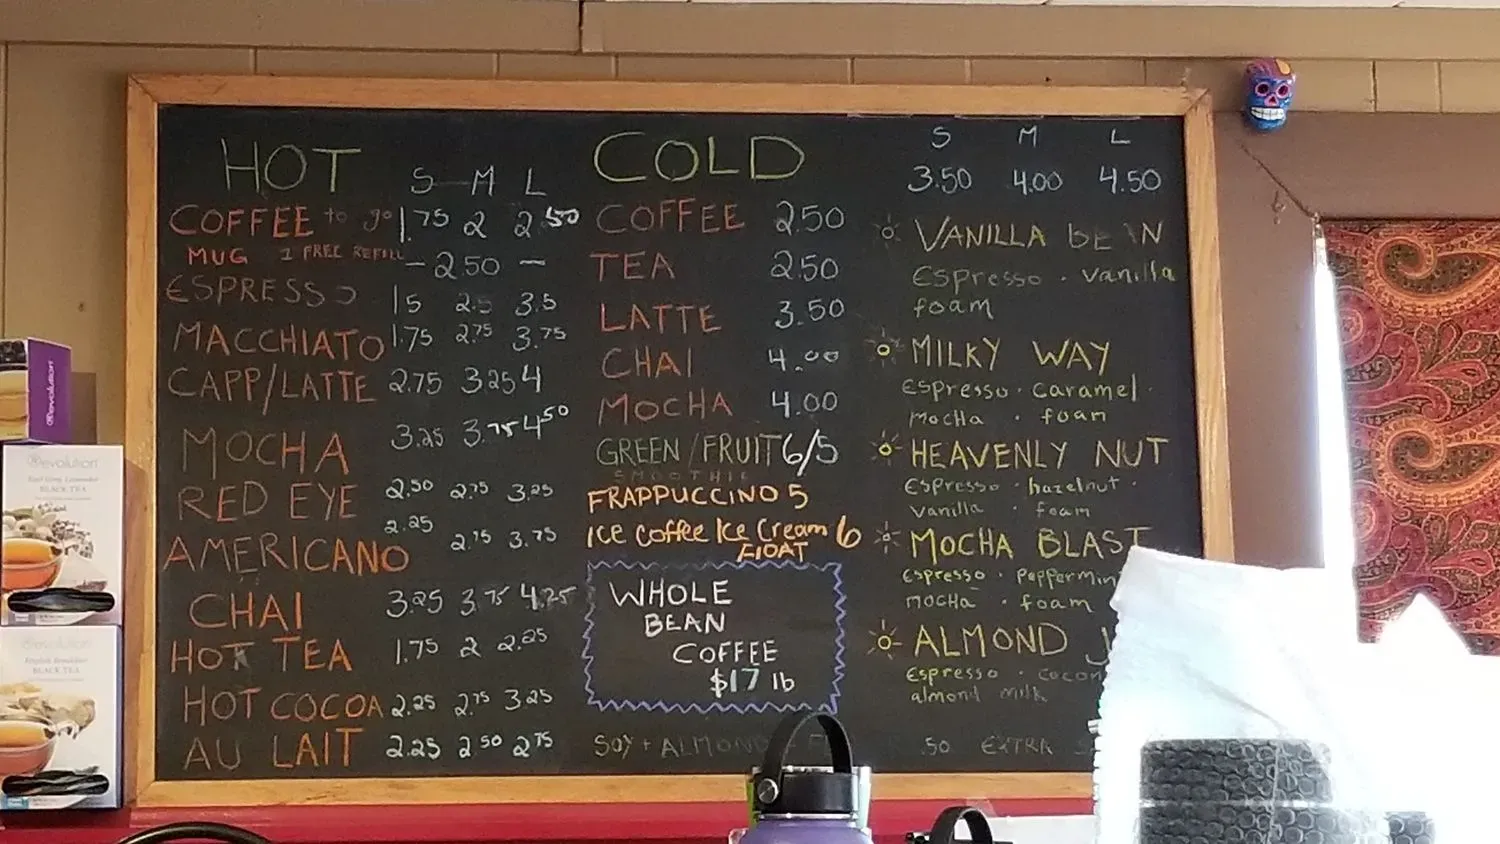 HOT S M L
COFFEE to go 1.75 2 2 50
MUG 1 FREE REFILL - 2.50 -
ESPRESSO 15 2.5 3.5
MACCHIATO 1.75 2.75 3.75
CAPP/LATTE 2.75 3.25 4
MOCHA 3.25 3.75 4 50
RED EYE 2.50 2.75 3.25
AMERICANO 2.25 2.75 3.75
CHAI 3.25 3.75 4.25
HOT TEA 1.75 2 2.25
HOT COCOA 2.25 2.75 3.25
AU LAIT 2.25 2 50 2 75
COLD
COFFEE 2.50
TEA 2.50
LATTE 3.50
CHAI 4.00
MOCHA 4.00
GREEN/FRUIT 6/5
SMOOTHIE
FRAPPUCCINO 5
ICE Coffee Ice Cream 6
FlOAT
WHOLE
BEAN
COFFEE
$17 lb
SOY + ALMOND .50 EXTRA
S M L
3.50 4.00 4.50
VANILLA BEAN
Espresso · vanilla
foam
MILKY WAY
Espresso · caramel ·
MOCHA · foam
HEAVENLY NUT
Espresso · hazelnut ·
vanilla · foam
MOCHA BLAST
Espresso · Peppermin
MOCHA · foam
ALMOND J
Espresso · cocon
almond milk
Revolution
Revolution
BLACK TEA
Revolution
English Breakfast
BLACK TEA